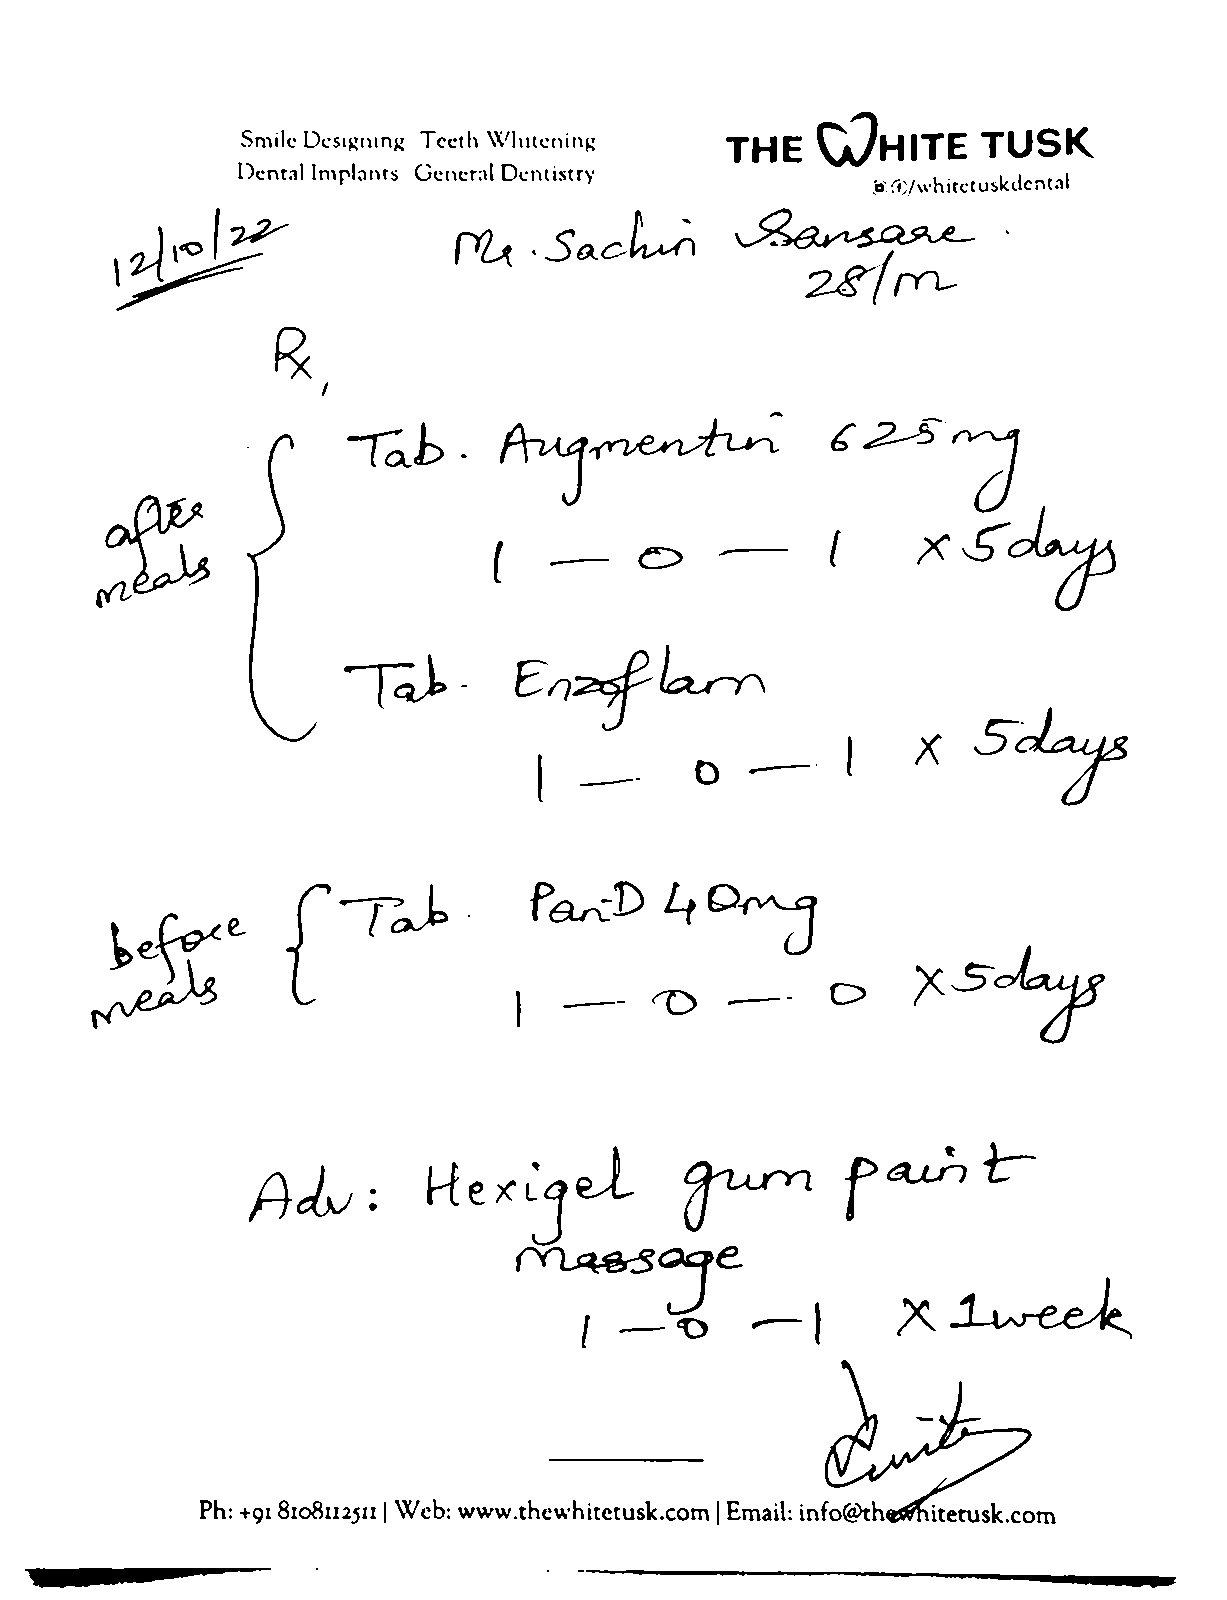 Smile Designing Teeth Whitening
Dental Implants General Dentistry
THE WHITE TUSK
/whitetuskdental
12/10/22
Mr. Sachin Sansare
28/m
Rx,
after
meals
Tab. Augmentin 625mg
1 — 0 — 1 x 5days
Tab. Enzoflam
1 — 0 — 1 x 5days
before
meals
Tab. Pan-D 40mg
1 — 0 — 0 x 5days
Adv: Hexigel gum paint
massage
1 — 0 — 1 x 1week
Ph: +91 8108112511 | Web: www.thewhitetusk.com | Email: info@thewhitetusk.com